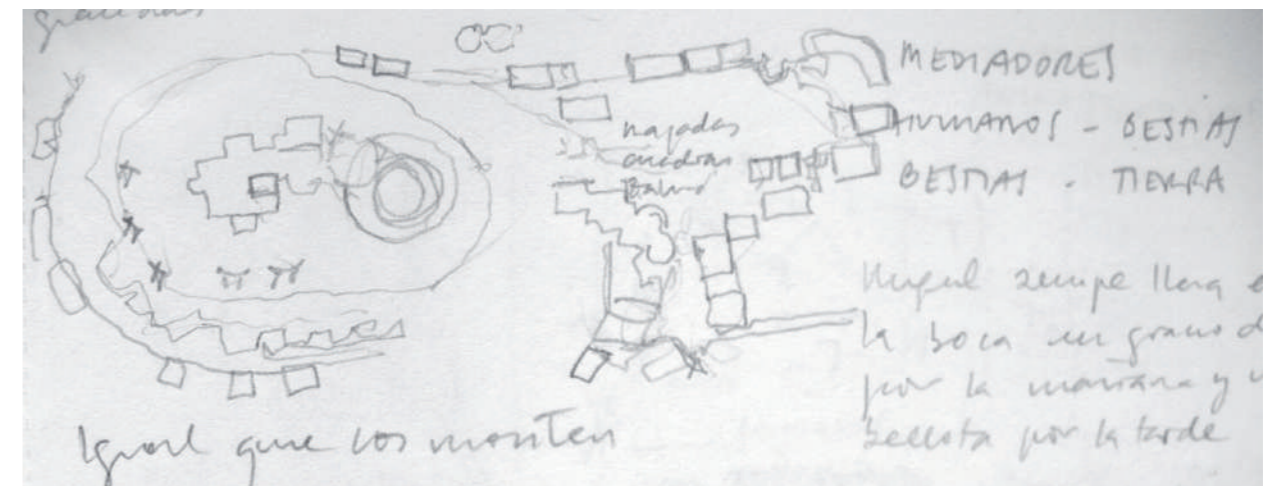 MEDIADORES
HUMANOS - BESTIAS
BESTIAS - TIERRA
majadas
cuadras
la boca un grano d
por la mañana y
bellota por la tarde
Igual que los